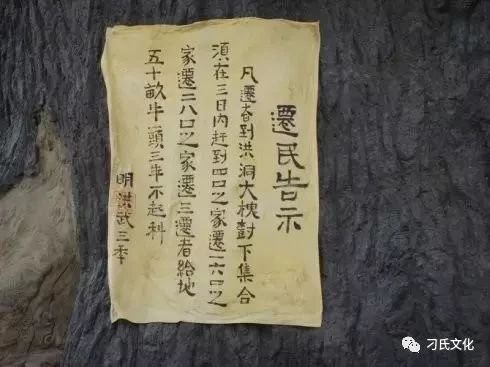 遷民告示
凡遷者到洪洞大槐樹下集合
須在三日内赶到四口之家遷一六口之
家遷二八口之家遷三遷者給地
五十畝牛一頭三年不起科
明洪武三年
刁氏文化